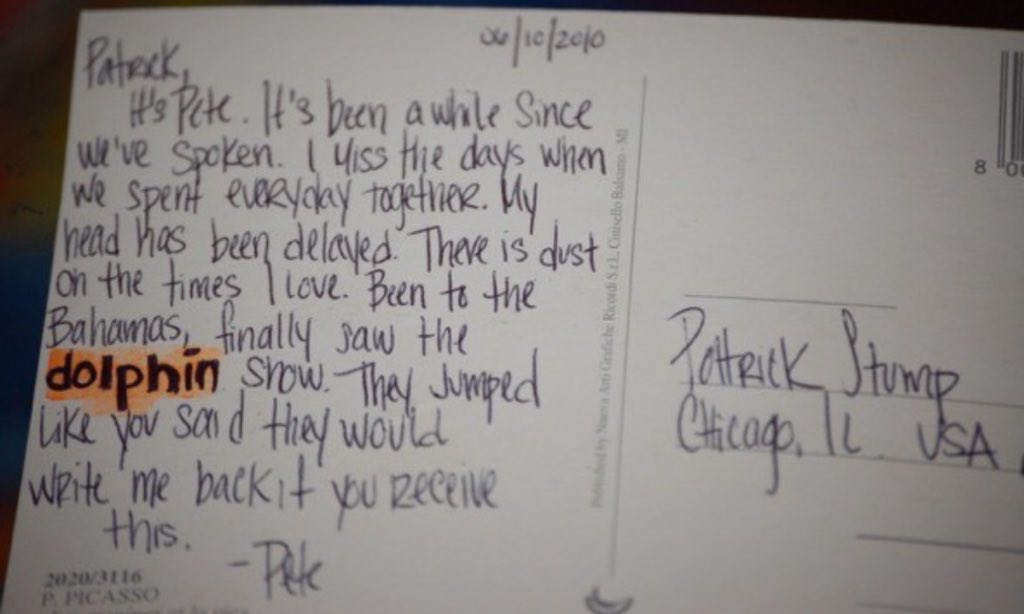 06/10/2010
Patrick,
It's Pete. It's been a while since
we've spoken. I miss the days when
we spent everyday together. My
head has been delayed. There is dust
on the times I love. Been to the
Bahamas, finally saw the
dolphin show. They jumped
like you said they would
write me back if you receive
this.
- Pete
2020/3116
P. PICASSO
Published by Nuova Arti Grafiche Ricordi S.r.l, Cinisello Balsamo - MI
8 00
Patrick Stump
Chicago, IL USA